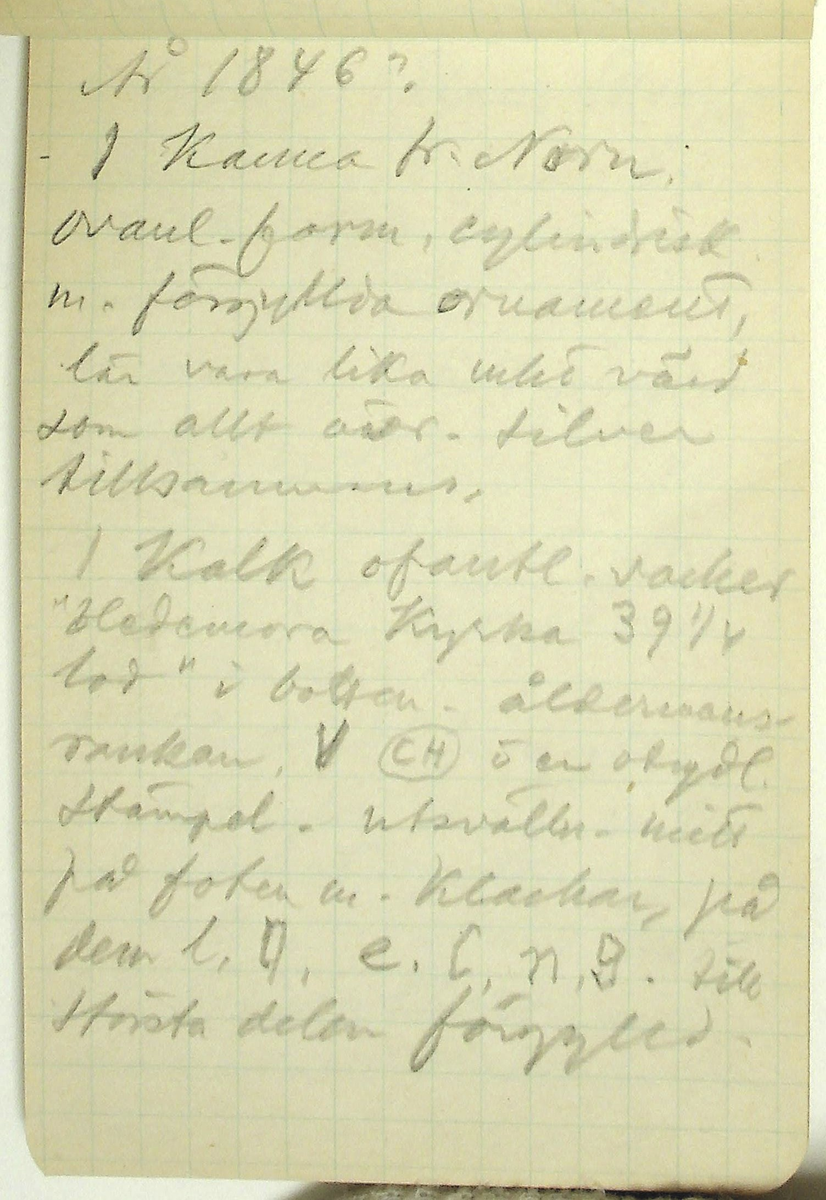 År 1846?.
- 1 Kanna fr. Norn.
ovanl. form, cylindrisk
m. förgyllda ornament,
lär vara lika mkt värd
som allt över. silver
tillsammans.
1 Kalk ofantl. vacker
"Hedemora Kyrka 39 1/4
lod" i botten. åldermans-
rankan, V CH o en otydl.
stämpel. utsvälln. mitt
på foten m. Klackar, på
dem l.
till
största delen förgylld.